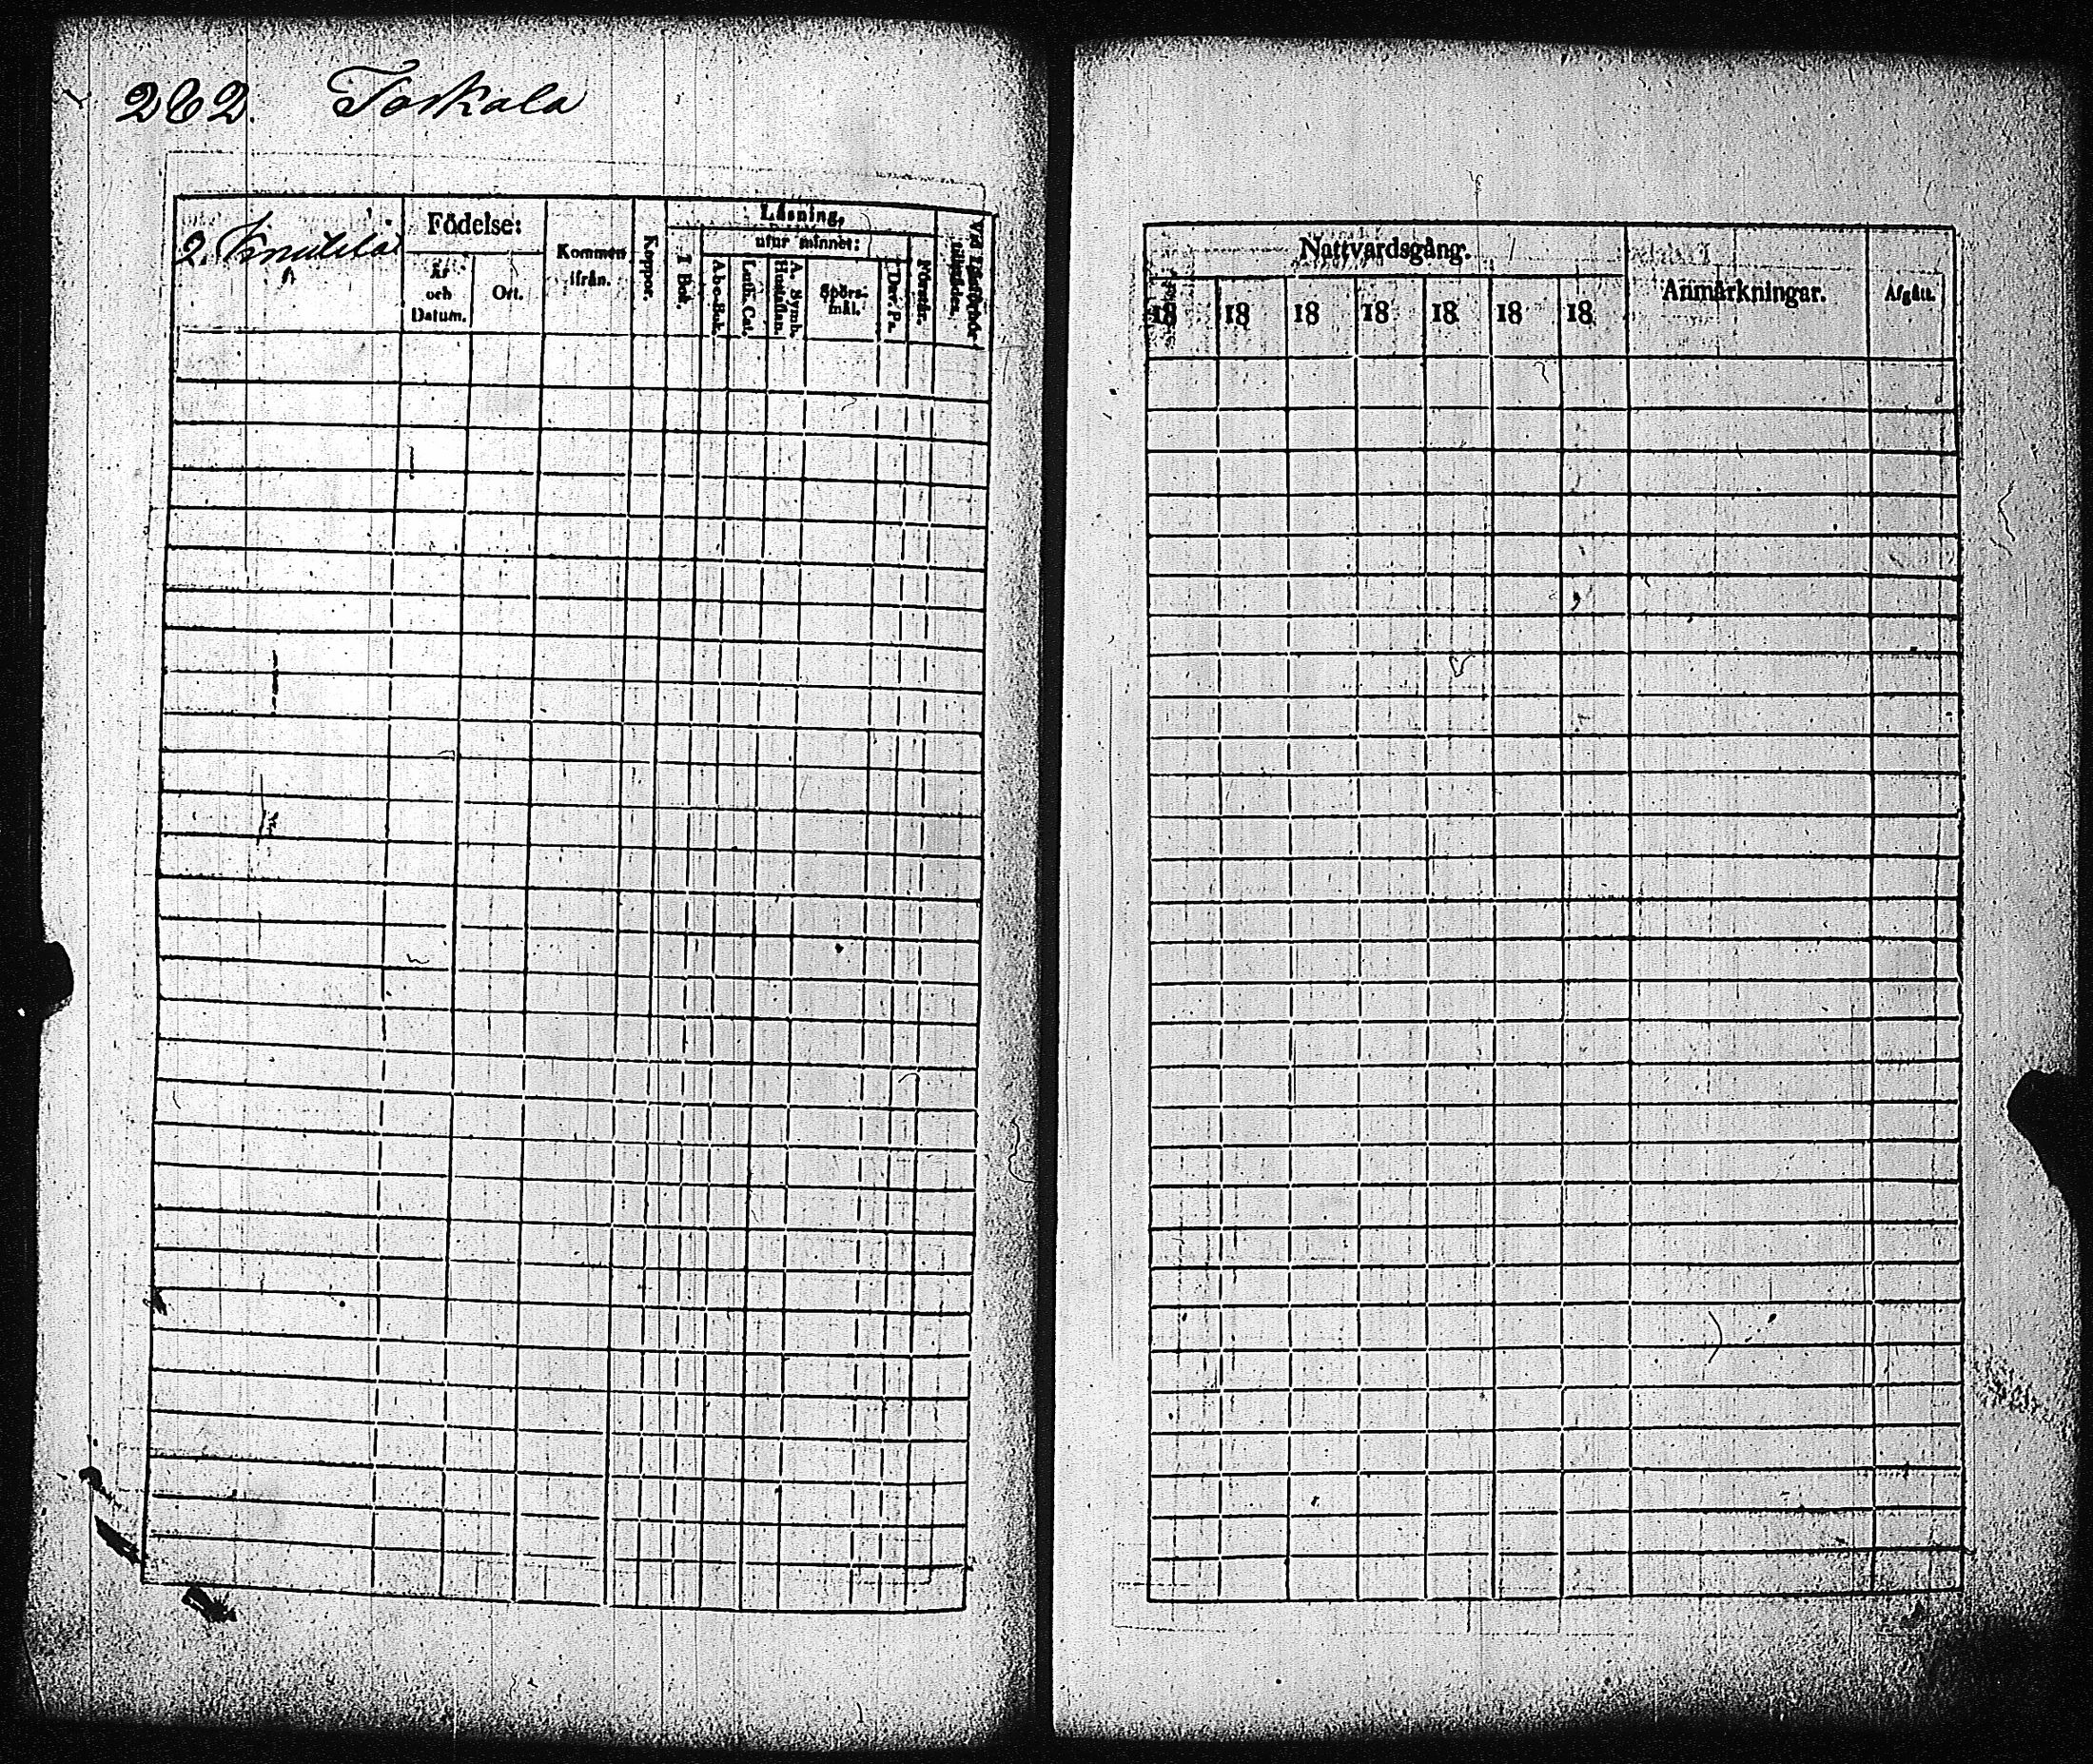 262. Toskala
2. Knutila
Födelse:
År
och
Datum.
Ort.
Kommen
ifrån.
Koppor.
Läsning,
utur minnet:
I Bok.
A-b-c-Bok.
Luth. Cat.
A. Symb.
Hustaflan.
Spörs-
mål.
Dav. Ps.
Förstår.
Vid Läseförhör
Nattvardsgång.
18 18 18 18 18 18 18
Anmärkningar.
Afgått.